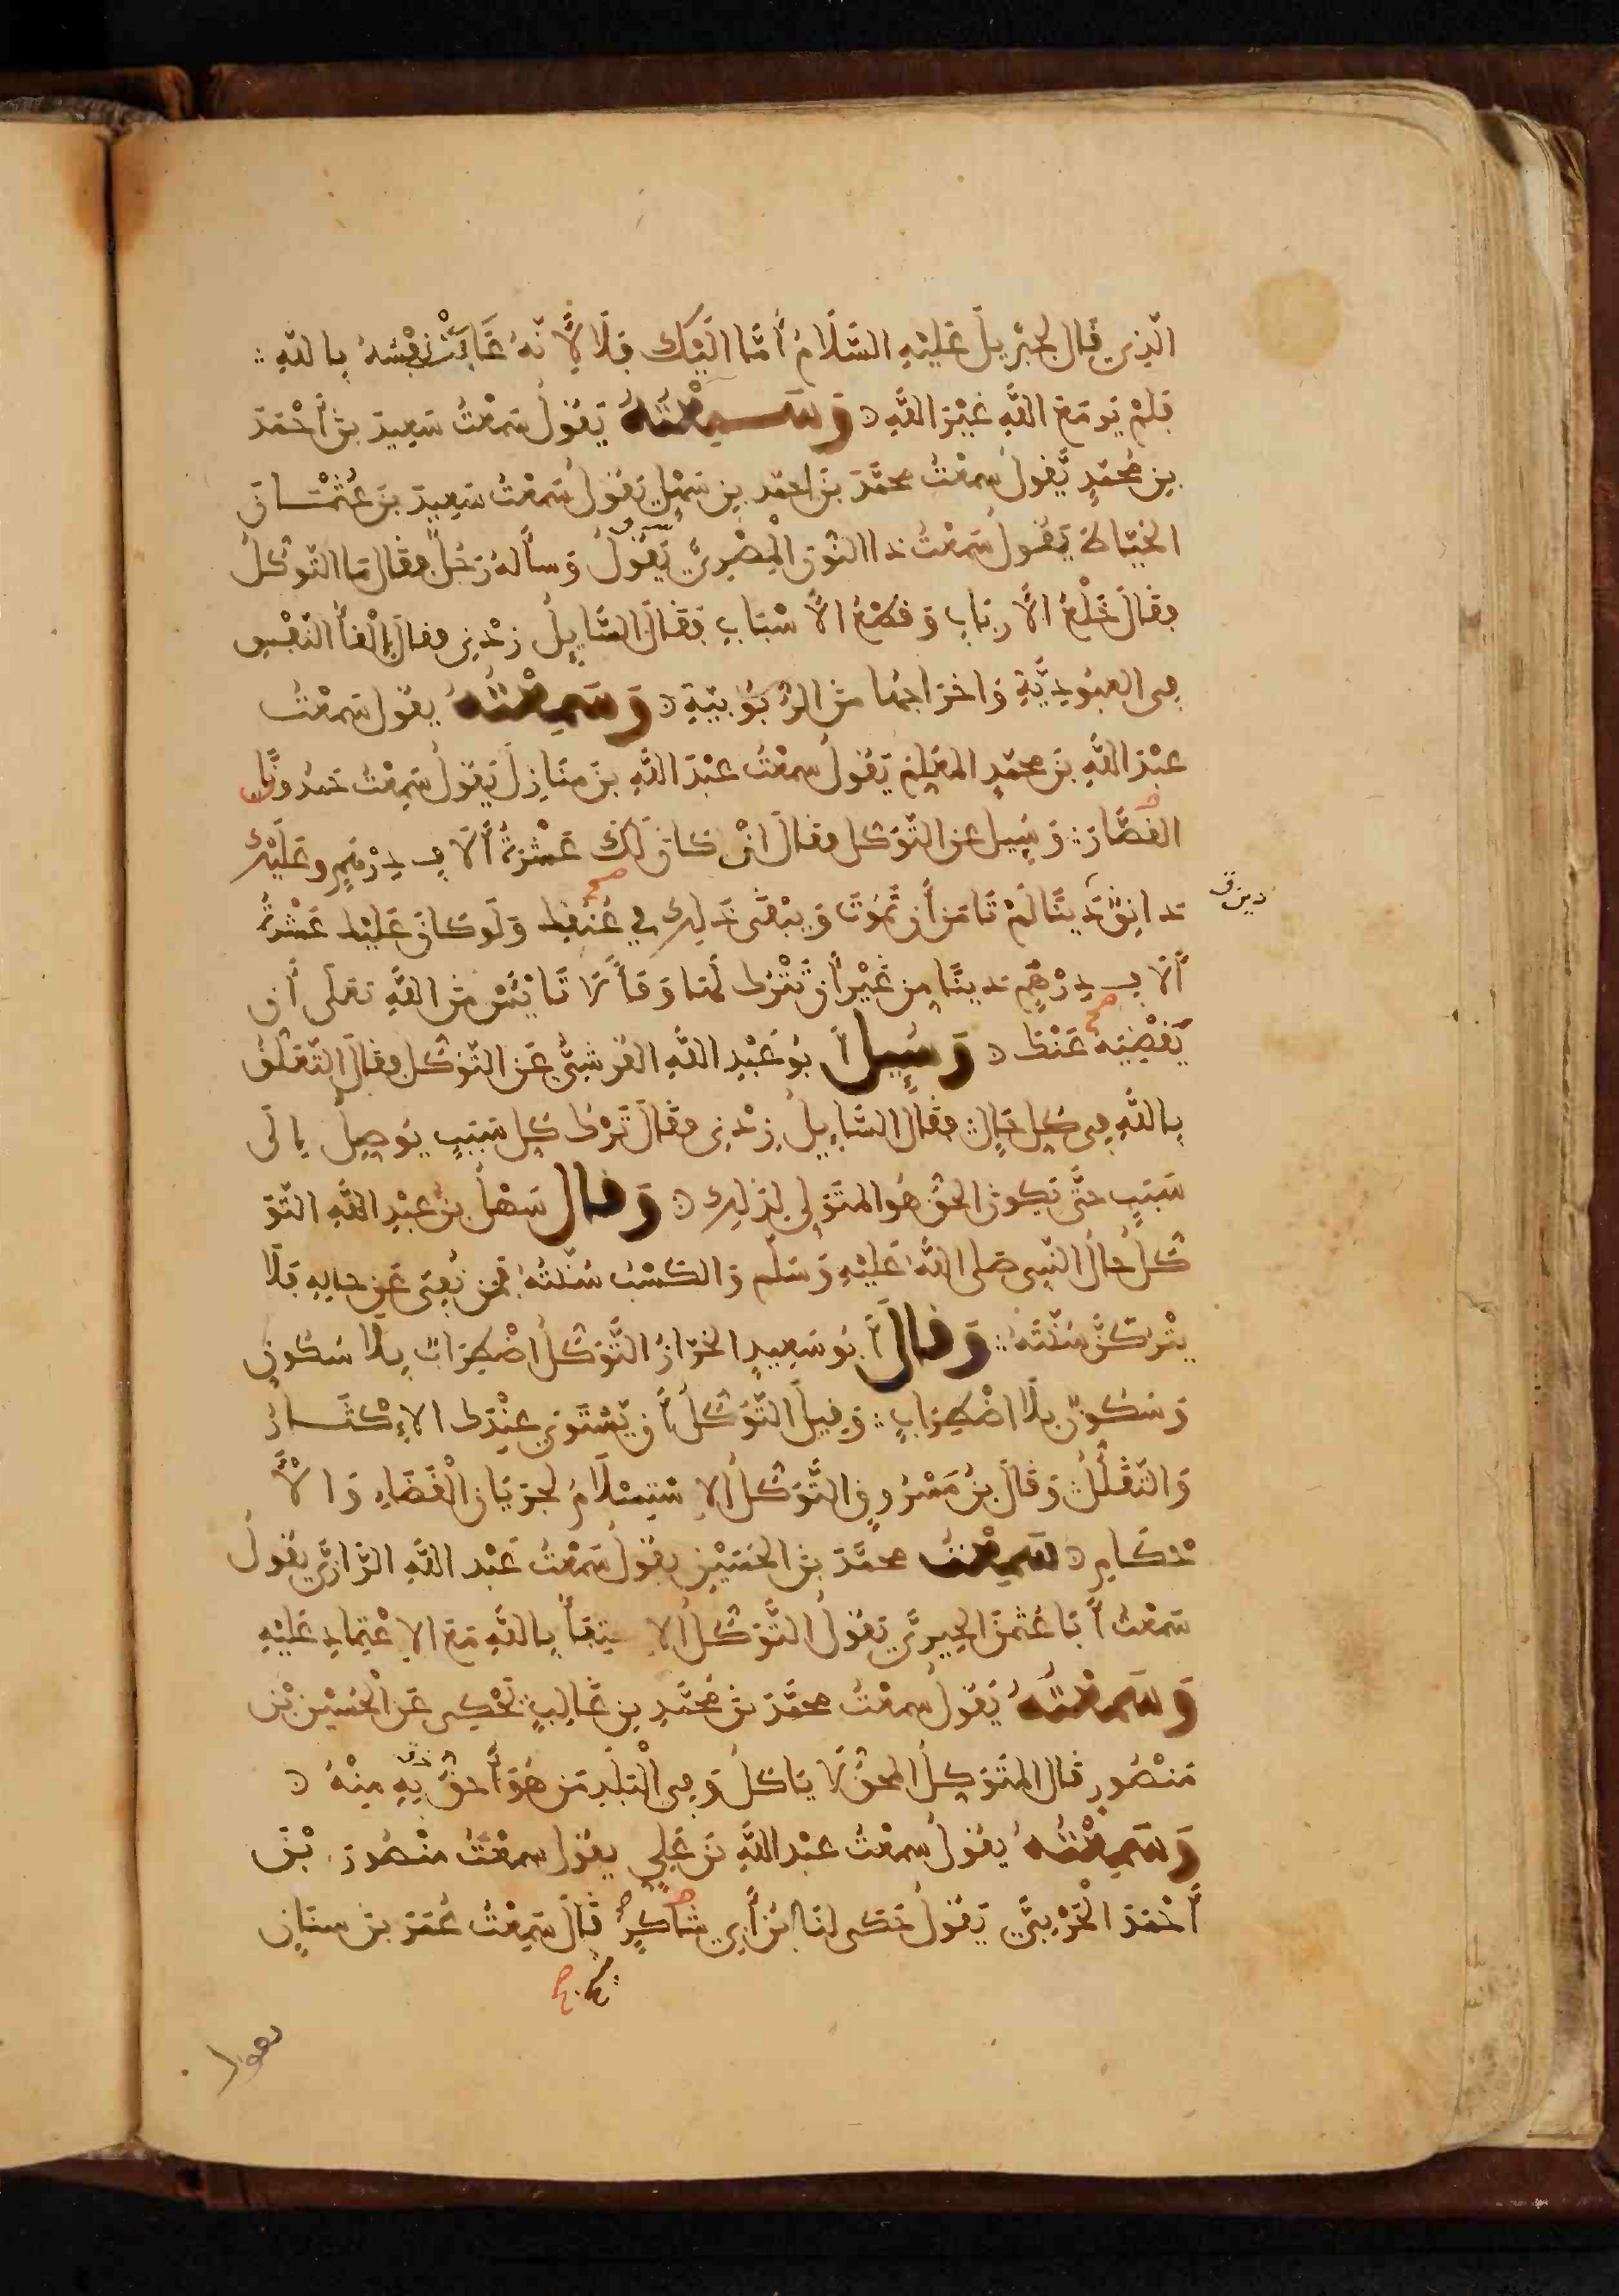 الّذِى قَال لجبْرِيلَ عَلَيْهِ السَّلَامُ أمَّا الَيْكَ فلَا لِأنَّهُ غَابَتْ نَفْسُهُ بِاللهِ
فلَمْ يَرَ مَعَ اللهِ غَيْرَ اللهِ وَسَمِعْتُهُ يَقُولُ سَمِعْتُ سَعِيدَ بن أَحْمَدَ
بنِ مُحمّدٍ يَّقولُ سمِعْتُ محمَّدَ بنَ احمَد بن سَهْلٍ يَقولُ سَمعْتُ سَعِيدَ بنَ عُثْمَانَ
الخيّاطَ يَقُولُ سَمعْتُ ذا النّون الْمِصْرِيَّ يَقُولُ وَسألهُ رَجُلٌ فقال مَا التّوكّلُ
فقَالَ خَلْعُ الأرْبَاب وَقَطْعُ الأسْبَابِ فَقَالَ السَّايِلُ زِدْنِى فقالَ إلْقَأُ النّفْسِ
فِى العبُودِيَّةِ وَاخرَاجُهَا منَ الرّبُوبيّةِ وَسَمِعْتُهُ يقُولُ سَمِعْتُ
عبْدَ اللهِ بنَ محمّدٍ المعَلِّمَ يَقُولُ سمعْتُ عبْدَ اللهِ بنَ منَازِلَ يَقُولُ سَمِعْتُ حَمدُونَ
القصَّارَ وَسُيِل عن التَّوَكّل فقالَ انْ كانَ لَكَ عَشْرَةُ ألَافِ دِرْهَمٍ وعَلَيْكَ
دَانِقٌ دَيْنًا لَمْ تَامَنْ أن تَّمُوتَ وَيبْقَى ذَلِكَ في عُنقِكَ وَلَو كانَ عَليْك عَشْرَةُ
دين ق
ألافِ دِرْهَمٍ دَيْنًا مِن غَيْر أن تَتْرُكَ لَهَا وَفَأً لَا تَايْئسْ مِنَ اللهِ تعلَى أن
يَّقْضِيَهُ عَنْكَ وَسُيِلَ أبُو عَبْدِ اللهِ القُرشِيُّ عَن التّوَكّل فقالَ التّعَلّقُ
باللهِ فِى كلِ حَالٍ فقالَ السَّايِلُ زِدْنِى فقَالَ تَرْكُ كلِ سَبَبٍ يُوصِلُ إلى
سَبَبٍ حتَّى يَكونَ الحَقّ هُوَ المتَوَلِى لِذَلِكَ وَقَال سَهْلُ بنُ عبْدِ اللهِ التّوَ
كّلُ حالُ النّبى صلى اللهُ عَلَيْهِ وَسَلّم وَالكَسْبُ سُنّتُهُ فمَن بَقِىَ عَلَى حالِهِ فَلَا
يتْرُكَنَّ سُنّتَهُ وَقَالَ أبُو سَعِيدٍ الخرّازُ التَّوَكّلُ اضْطِرَابٌ بِلا سُكونٍ
وَسُكُونٌ بِلا اضْطِرَابٍ وَقِيلَ التّوَكّلُ أن يّسْتَوِىَ عِنْدَكَ الإكْثَارُ
وَالتَّقَلُّلُ وَقَالَ بنُ مَسْرُوقٍ التَّوَكّلُ الاِسْتِسْلَامُ لجرَيَانِ الْقَضَاءِ وَالْأ
حْكَامِ سَمِعْتُ محمَّدَ بنَ الحسَيْنِ يقُولُ سَمعْتُ عَبْد اللهِ الرَّازِىَّ يقُولُ
سَمعْتُ أبَا عُثمٰنَ الحِيرىَّ يَقُولُ التَّوَكّلُ الاِكْتِفَأُ بِاللهِ مَعَ الاِعْتِمادِ عَلَيْهِ
وَسَمِعْتُهُ يَقُولُ سمعْتُ محمَّدَ بنَ مُحمَّدِ بنِ غَالِبٍ يَحْكِى عَنِ الْحُسَيْنِ بْنِ
مَنْصُورٍ قال المتَوَكِلُ المحِقُّ لَا يَاكلُ وَفِى الْبَلَدِ مَن هُوَ أحَقُّ بِهِ مِنْهُ
وَسَمِعْتُهُ يقُولُ سمعْتُ عبْدَ اللهِ بنَ عَلِيٍّ يقُولُ سمعْتُ منْصُورَ بْنَ
أحْمَدَ الْحَرْبِىَّ يَقُولُ حَكى لنَا ابنُ أبِى شاكِرٍ قَالَ سَمِعْتُ عُمَرَ بنَ سنَانٍ
يقول